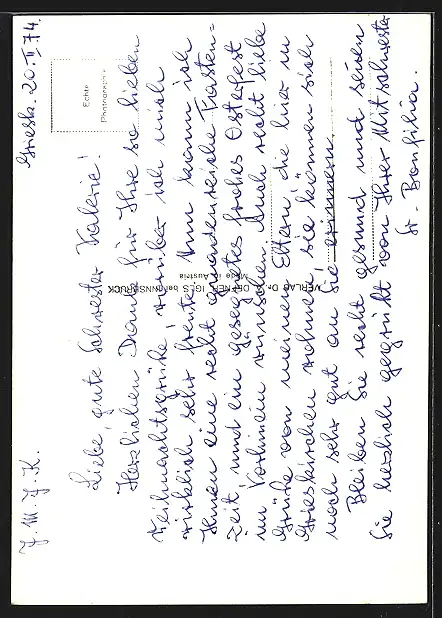 J. M. J. K.
Griesk. 20. II 74.
Liebe, gute Schwester Valerie!
Herzlichen Dank für Ihre so lieben
Weihnachtsgrüße, worüber ich mich
wirklich sehr freute. Nun kann ich
Ihnen eine recht gnadenreiche Fasten=
zeit und ein gesegnetes frohes Osterfest
im Vorhinein wünschen. Auch recht liebe
Grüße von meinen Eltern, die hier in
Grieskirchen wohnen, sie können sich
noch sehr gut an Sie erinnern.
Bleiben Sie recht gesund und seien
Sie herzlich gegrüßt von Ihrer Mitschwester
Sr. Bonfilia.
Echte
Photographie
VERLAG Dr. A. DEFNER, IGLS bei INNSBRUCK
Made in Austria